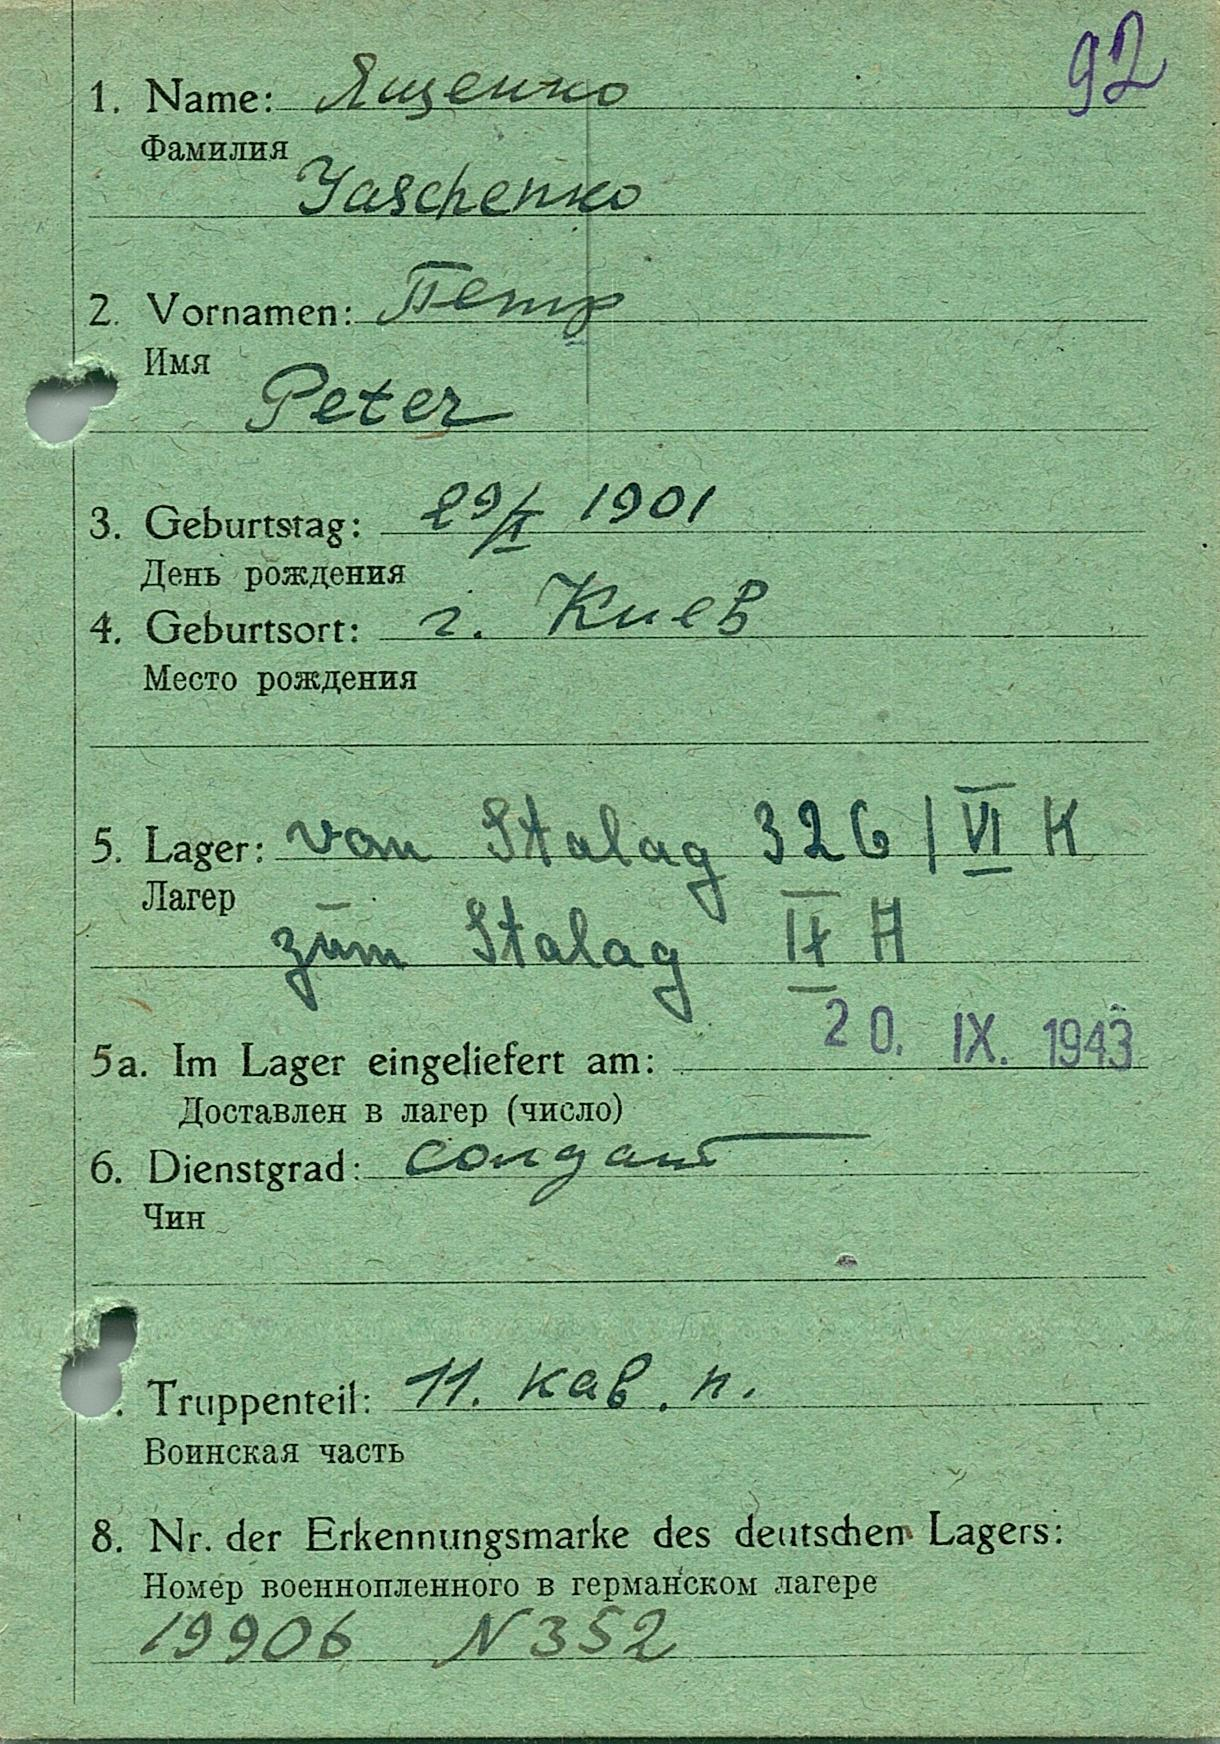 92
1. Name: Ященко
Фамилия
Yaschenko
2. Vornamen: Петр
Имя
Peter
3. Geburtstag: 29/II 1901
День рождения
4. Geburtsort: г. Киев
Место рождения
5. Lager: vom Stalag 326 / VI K
Лагер
zum Stalag IX A
20. IX. 1943
5a. Im Lager eingeliefert am:
Доставлен в лагер (число)
6. Dienstgrad: солдат
Чин
. Truppenteil: 11. кав. п.
Воинская часть
8. Nr. der Erkennungsmarke des deutschen Lagers:
Номер военнопленного в германском лагере
19906 N 352